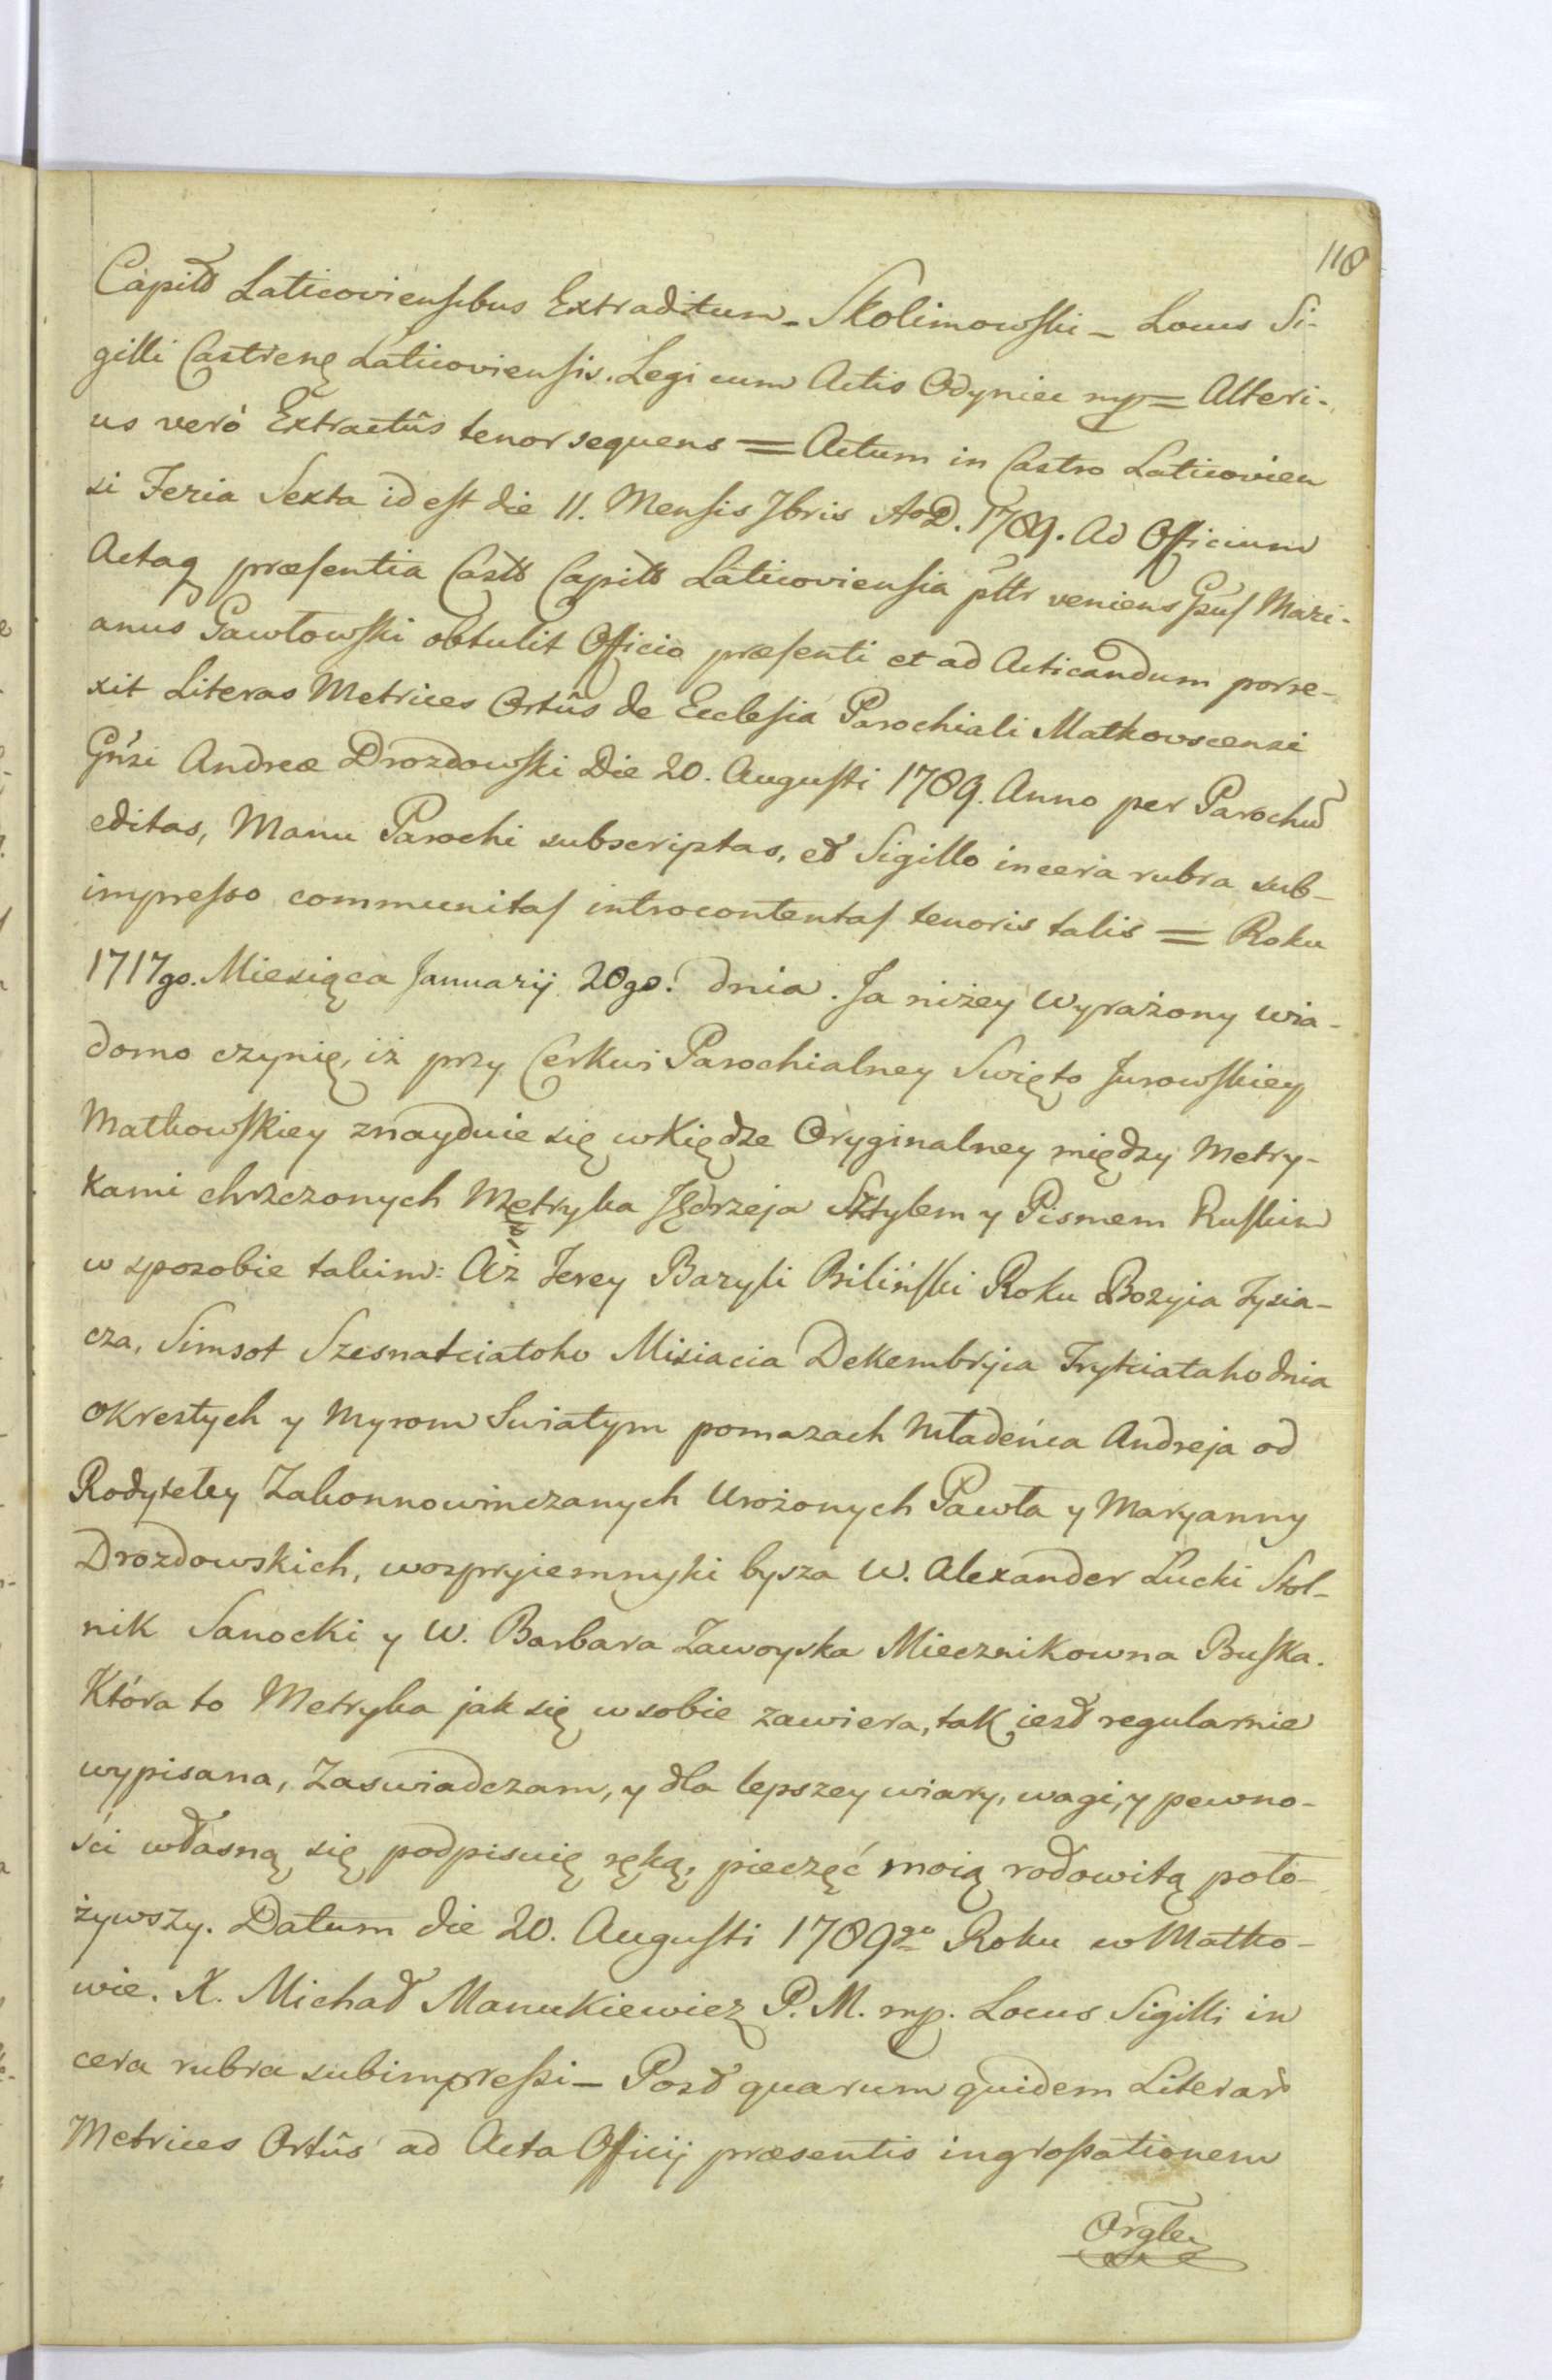 118
Capitł Laticoviensibus Extraditum - Skolimowski - Locus Si-
gilli Castrenę Laticoviensis. Legi cum Actis Odyniec mp = Alteri-
us verò Extractûs tenor sequens = Actum in Castro Laticovien
si Feria Sexta id est die 11. Mensis 7bris AoD. 1789. Ad Officium
Actaq præsentia Castr Capitł Laticoviensia pltr veniens Gsus Mari-
anus Gawłowski obtulit Officio præsenti et ad Acticandum porre-
xit Literas Metrices Ortûs de Ecclesia Parochiali Matkovscensi
Gnsi Andreæ Drozdowski Die 20. Augusti 1789. Anno per Parochū
editas, Manu Parochi subscriptas, et Sigillo in cera rubra sub-
impresso communitas introcontentas tenoris talis = Roku
1717go. Miesiąca Januarij 20go. dnia. Ja niżey Wyrażony wia-
domo czynię, iż przy Cerkwi Parochialney Swięto Jurowskiey
Matkowskiey znayduie się w Kiędze Oryginalney między Metry-
kami chrzczonych Metryka Jędrzeja Sztylem y Pismem Ruskim
w sposobie takim: Aż Jerey Bazyli Biliński Roku Bozyia Tysia-
cza, Simsot Szesnatciatoho Misiacia Dekembryia Trytciataho dnia
okrestych y Myrom Swiatym pomazach Mładeńca Andreja od
Rodyteley Zakonnowinczanych Urożonych Pawła y Maryanny
Drozdowskich, wozpryiemnyki bysza W. Alexander Łucki Stol-
nik Sanocki y W. Barbara Zawoyska Miecznikowna Buska.
Która to Metryka jak się w sobie zawiera, tak iest regularnie
wypisana, Zaswiadczam, y dla lepszey wiary, wagi, y pewno-
ści własną się podpisuię ręką, pieczęć moią rodowitą poło-
żywszy. Datum die 20. Augusti 1789go Roku w Matko-
wie. X. Michał Manukiewicz P. M. mp. Locus Sigilli in
cera rubra subimpressi - Post quarum quidem Literar
Metrices Ortûs ad Acta Officij præsentis ingrossationem